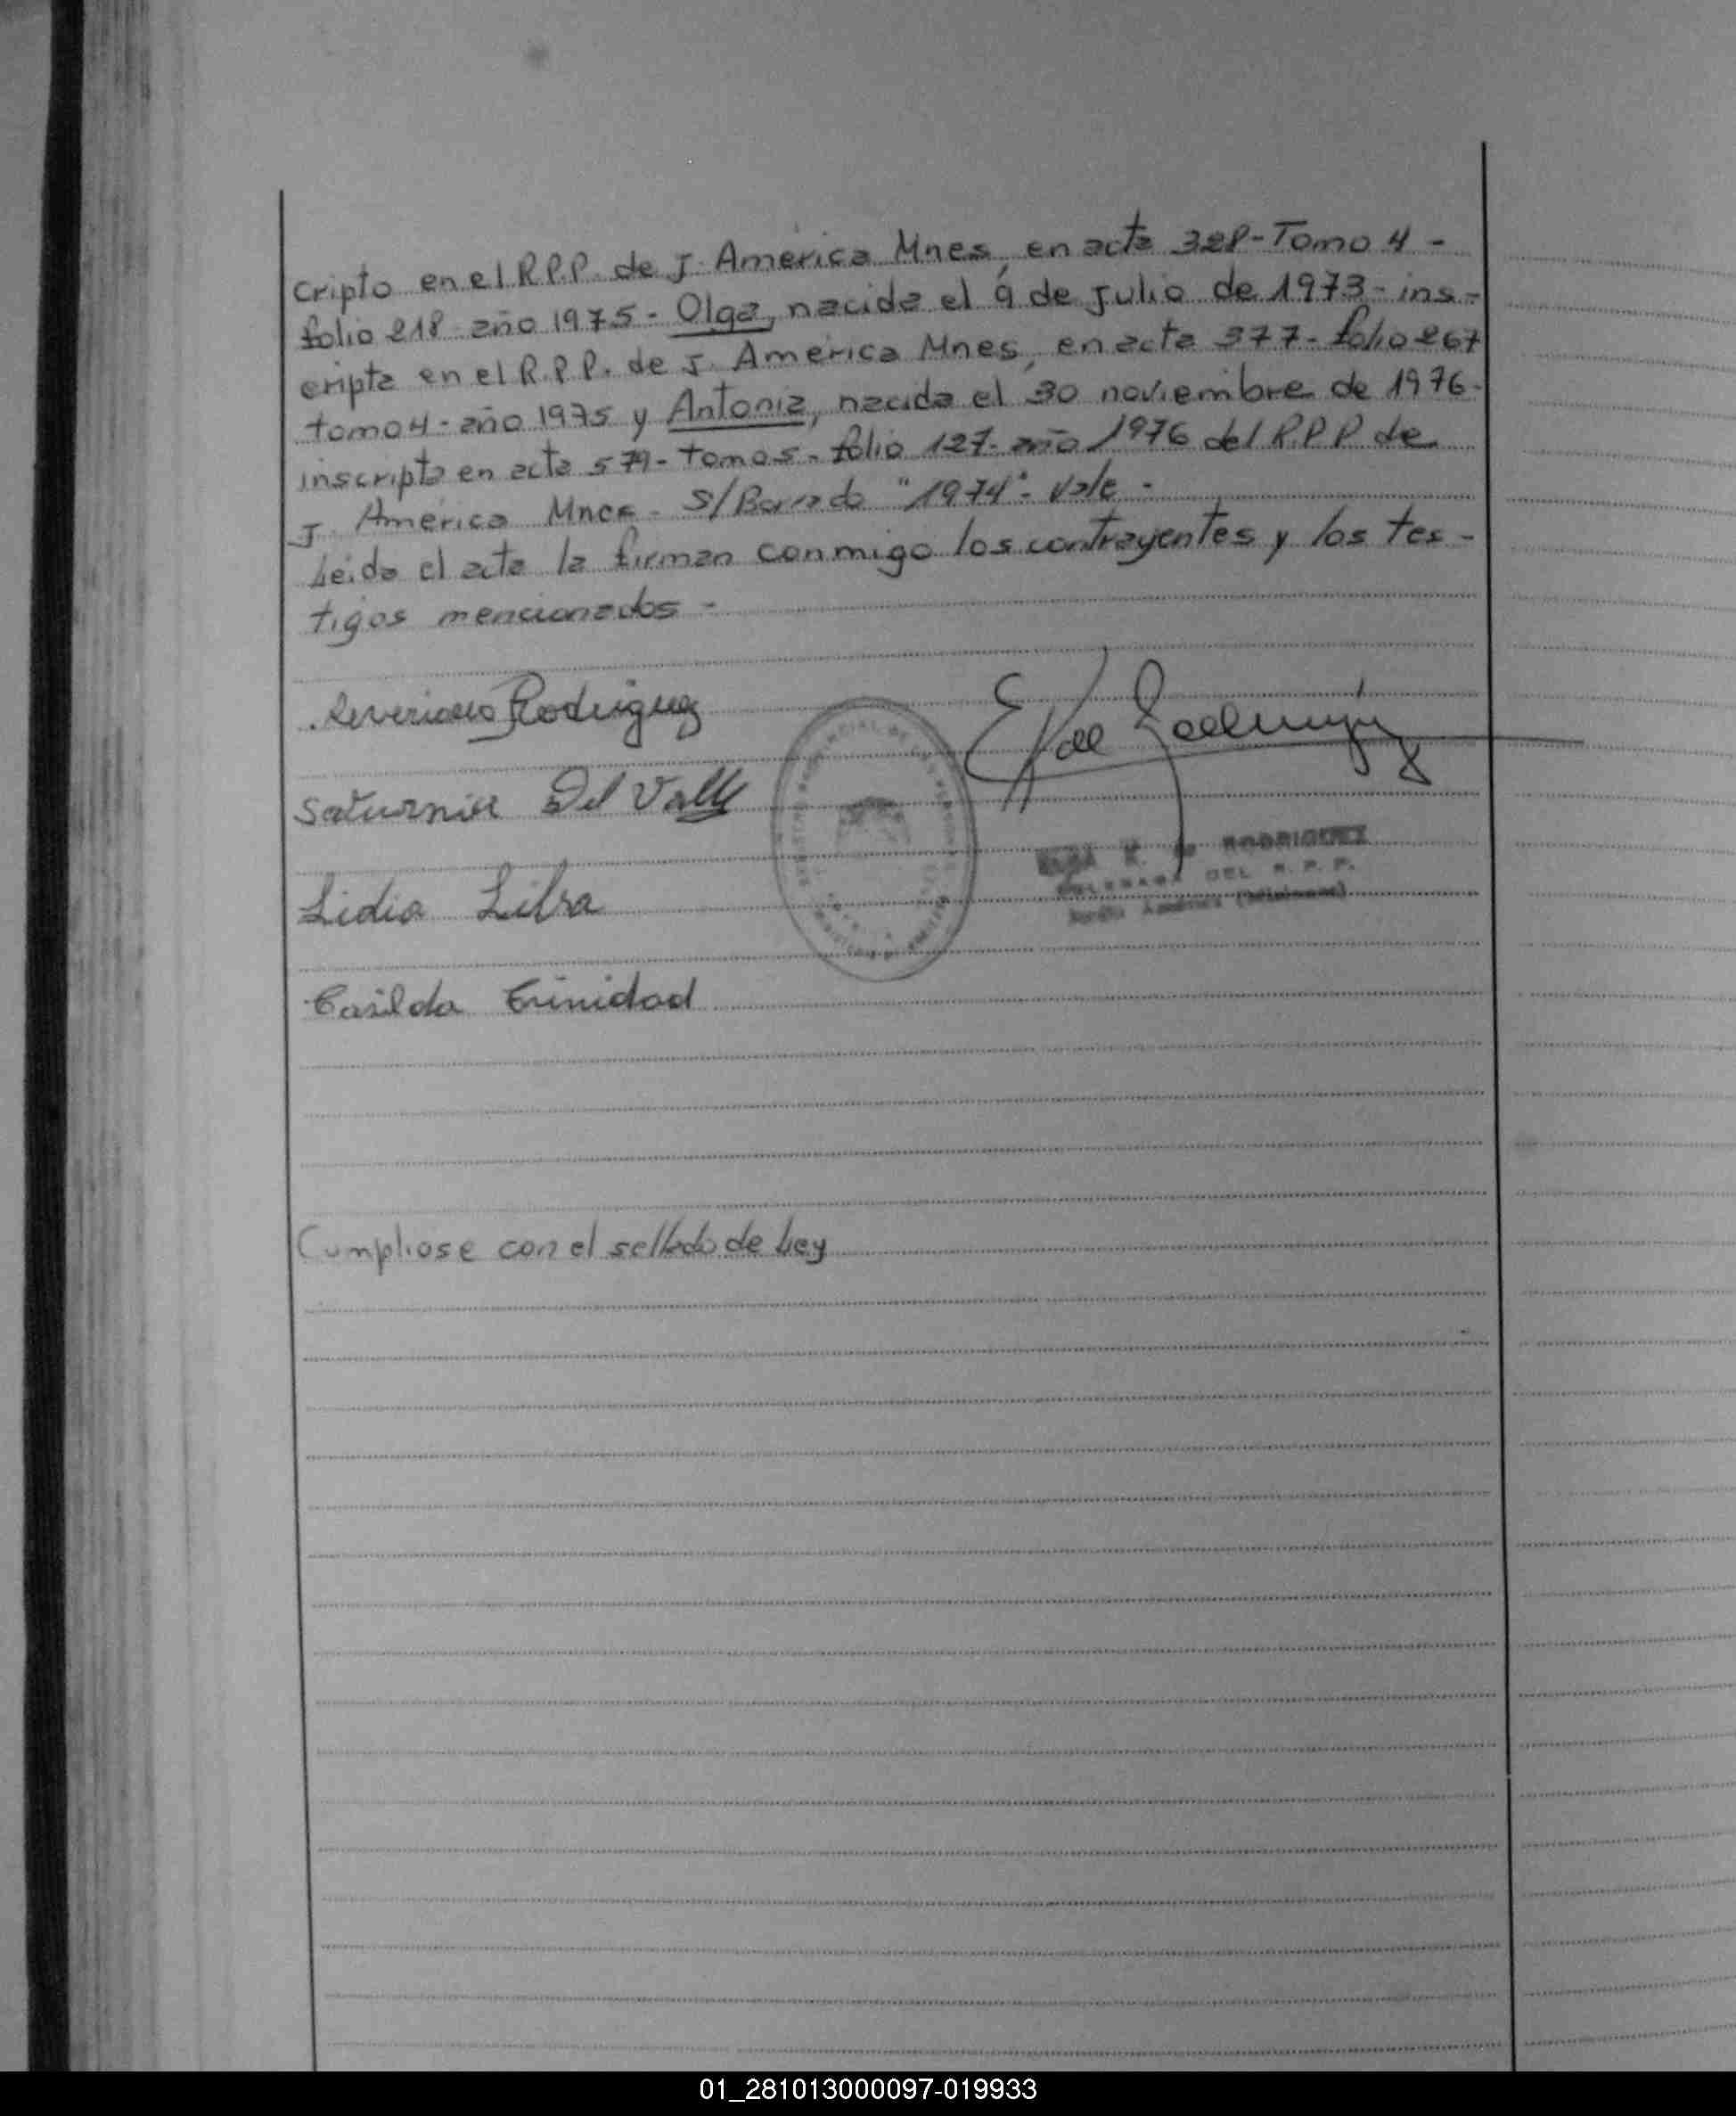 cripto en el R.P.P. de J. América Mnes, en acta 328-Tomo 4 -
folio 218 año 1975 - Olga, nacida el 9 de Julio de 1973 - ins-
cripta en el R.P.P. de J. América Mnes, en acta 377 - folio 267
tomo 4 - año 1975 y Antonia, nacida el 30 noviembre de 1976-
inscripta en acta 579 - tomo 5 - folio 127 - año 1976 del R.P.P de
J. América Mnes - S/Borrado "1974" - Vale -
Leida el acta la firman conmigo los contrayentes y los tes -
tigos mencionados -
Reveriano Rodriguez
Saturnia Del Valle
RODRIGUEZ
DEL R. P. P.
Lidia
Casilda Trinidad
Cumpliose con el sellado de Ley
01_281013000097-019933